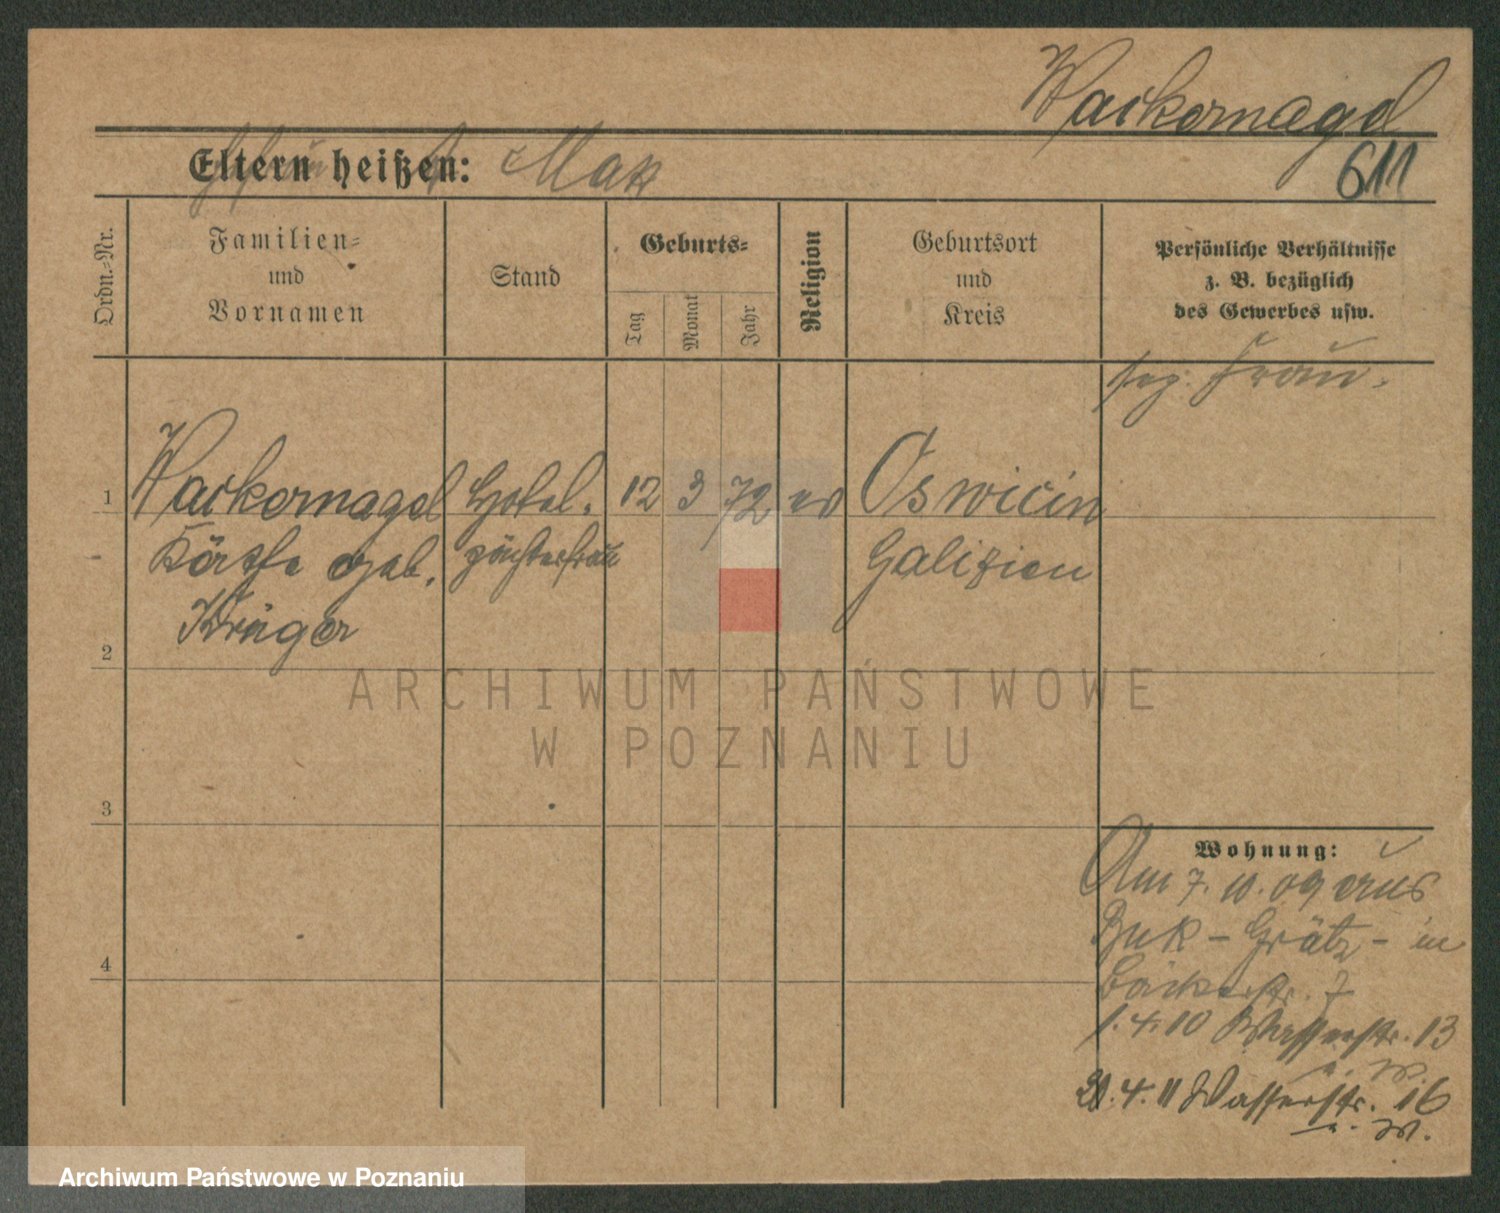 Wackernagel
Eltern heißen: Max
611
Ordn.-Nr.
Familien-
und
Vornamen
Stand
Geburts-
Tag
Monat
Jahr
Religion
Geburtsort
und
Kreis
Persönliche Verhältnisse
z. B. bezüglich
des Gewerbes usw.
Frau.
1
Wackernagel
Hotel.
12
3
72
ev
Oswicin
Käthe geb.
pächtersfrau
Galizien
Krüger
2
3
4
Wohnung:
Am 7. 10. 09 aus
Buk - Grätz - in
Bäckerstr. 7
1. 4. 10 Wasserstr. 13
4. 11 Wasserstr. 16
ARCHIWUM PAŃSTWOWE
W POZNANIU
Archiwum Państwowe w Poznaniu